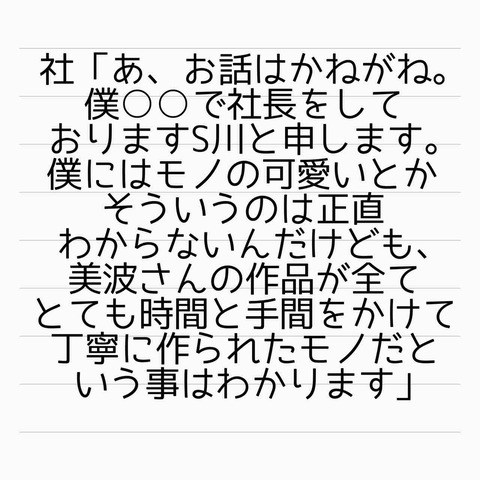 社「あ、お話はかねがね。
僕○○で社長をして
おりますS川と申します。
僕にはモノの可愛いとか
そういうのは正直
わからないんだけども、
美波さんの作品が全て
とても時間と手間をかけて
丁寧に作られたモノだと
いう事はわかります」